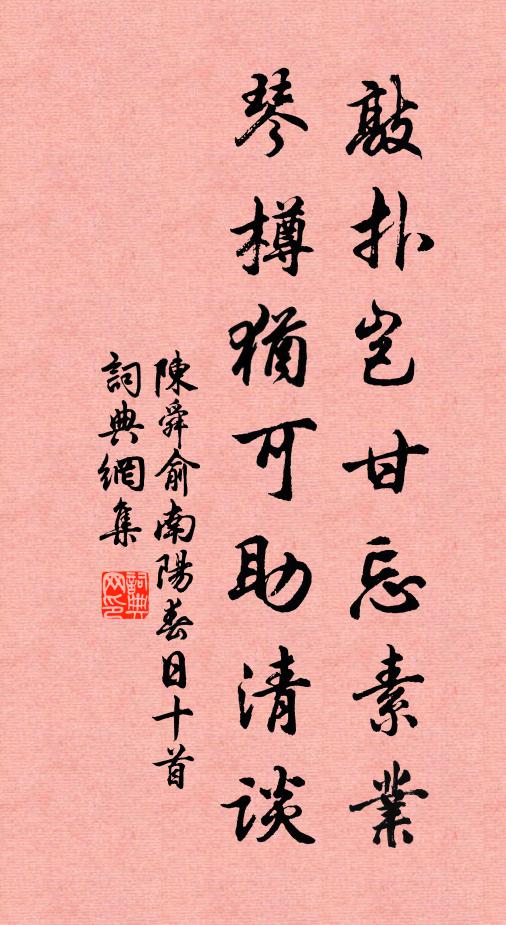 敲扑岂甘忘素業
琴樽猶可助清談
陳舜俞南陽春日十首
詞典網集
詞典网印